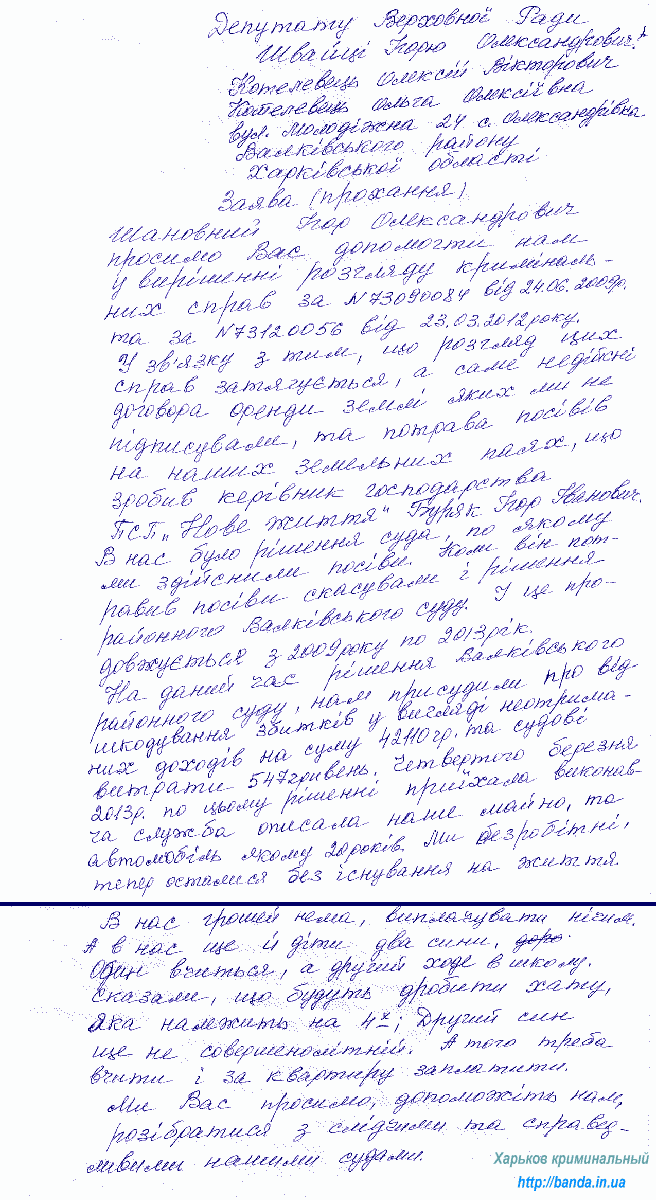 Депутату Верховної Ради
Швайці Ігорю Олександрович.
Котелевець Олексій Вікторович
Котелевець Ольга Олексіївна
вул. Молодіжна 24 с. Олександрівка
Валківського району
Харківської області
Заява (прохання)
Шановний Ігор Олександрович
просимо Вас допомогти нам
у вирішенні розгляду криміналь-
них справ за N73090084 від 24.06.2009р.
та за N73120056 від 23.03.2012року.
У зв'язку з тим, що розгляд цих
справ затягується, а саме недійсні
договора оренди землі яких ми не
підписували, та потрава посівів
на наших земельних паях, що
зробив керівник господарства
ПСП „Нове життя" Буряк Ігор Іванович.
В нас було рішення суда, по якому
ми здійснили посіви. Коли він пот-
равив посіви скасували і рішення
районного Валківського суду. І це про-
довжується з 2009року по 2013рік.
На даний час рішення Валківського
районного суду, нам присудили про від-
шкодування збитків у вигляді неотрима-
них доходів на суму 42110гр. та судові
витрати 547гривень. Четвертого березня
2013р. по цьому рішенні приїхала виконав-
ча служба описала наше майно, та
автомобіль якому 20років. Ми безробітні,
тепер осталися без існування на життя.
В нас грошей нема, виплачувати нічим.
А в нас ще й діти два сини,
Один вчиться, а другий ходе в школу.
Сказали, що будуть дробити хату,
яка належить на 4х; Другий син
ще не совершенолітній. А того треба
вчити і за квартиру заплатити.
Ми Вас просимо, допоможіть нам,
розібратися з слідчими та справед-
ливими нашими судами.
Харьков криминальный
http://banda.in.ua